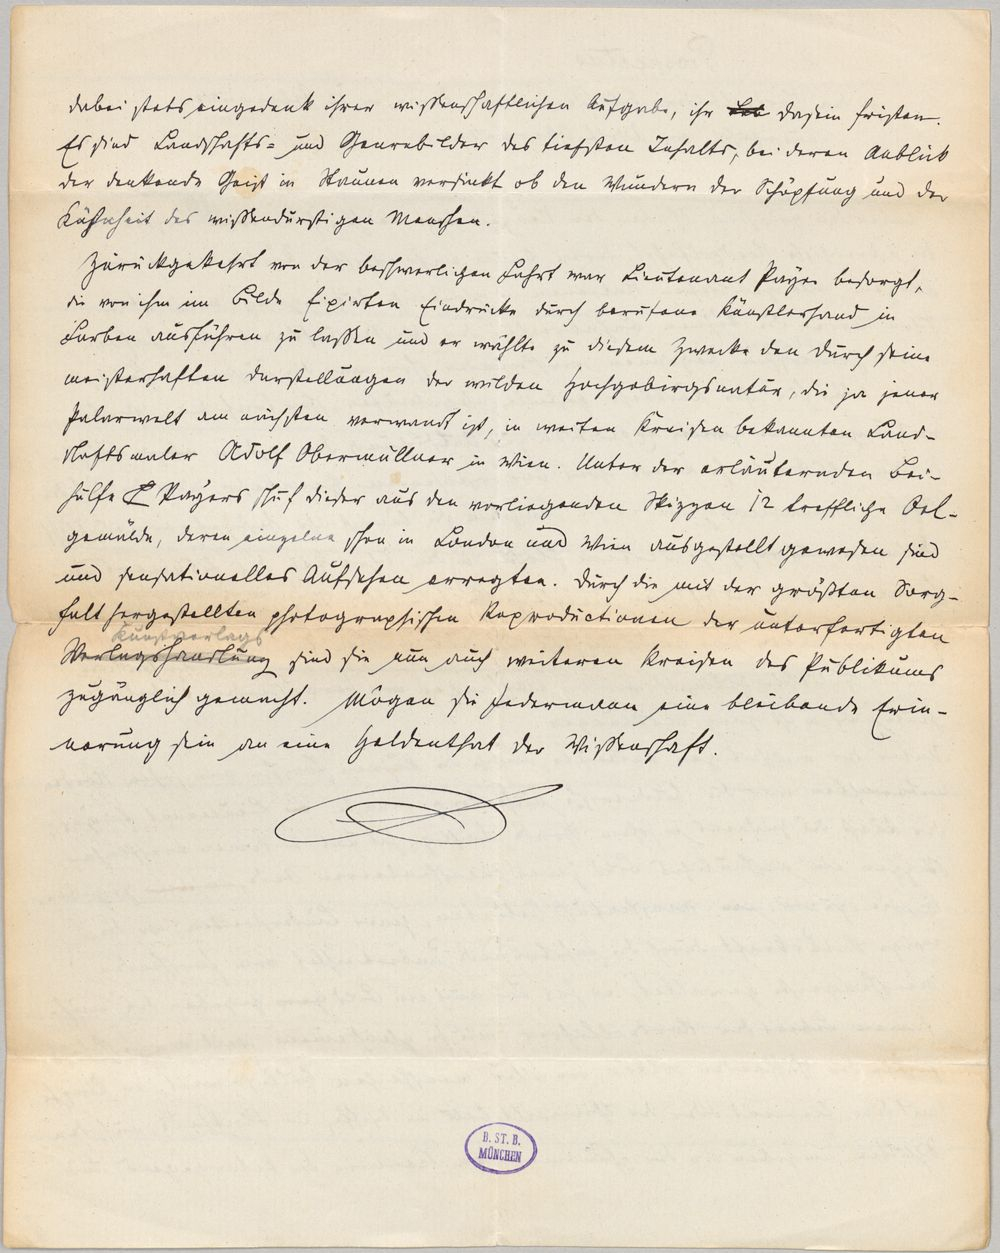 dabei stets eingedenk ihrer wissenschaftlichen Aufgabe, ihr Dasein fristen.
Es sind Landschafts- und Genrebilder des tiefsten Inhalts, bei deren Anblick
der denkende Geist in Staunen versinkt ob den Wundern der Schöpfung und der
Kühnheit des wissensdurstigen Menschen.
Zurückgekehrt von der beschwerlichen Fahrt war Lieutenant Payer besorgt,
die von ihm im Bilde fixirten Eindrücke durch berufene Künstlerhand in
Farben ausführen zu lassen und er wählte zu diesem Zwecke den durch seine
meisterhaften Darstellungen der wilden Hochgebirgsnatur, die ja jener
Polarwelt am nächsten verwandt ist, in weiten Kreisen bekannten Land-
schaftsmaler Adolf Obermüllner in Wien. Unter der erläuternden Bei-
hülfe Payers schuf dieser aus den vorliegenden Skizzen 12 treffliche Oel-
gemälde, deren einzelne schon in London und Wien ausgestellt gewesen sind
und sensationelles Aufsehen erregten. Durch die mit der größten Sorg-
falt hergestellten photographischen Reproductionen der unterfertigten
Kunstverlags
Verlagshandlung sind sie nun auch weiteren Kreisen des Publikums
zugänglich gemacht. Mögen sie Jedermann eine bleibende Erin-
nerung sein an eine Heldenthat der Wissenschaft.
B. ST. B.
MÜNCHEN